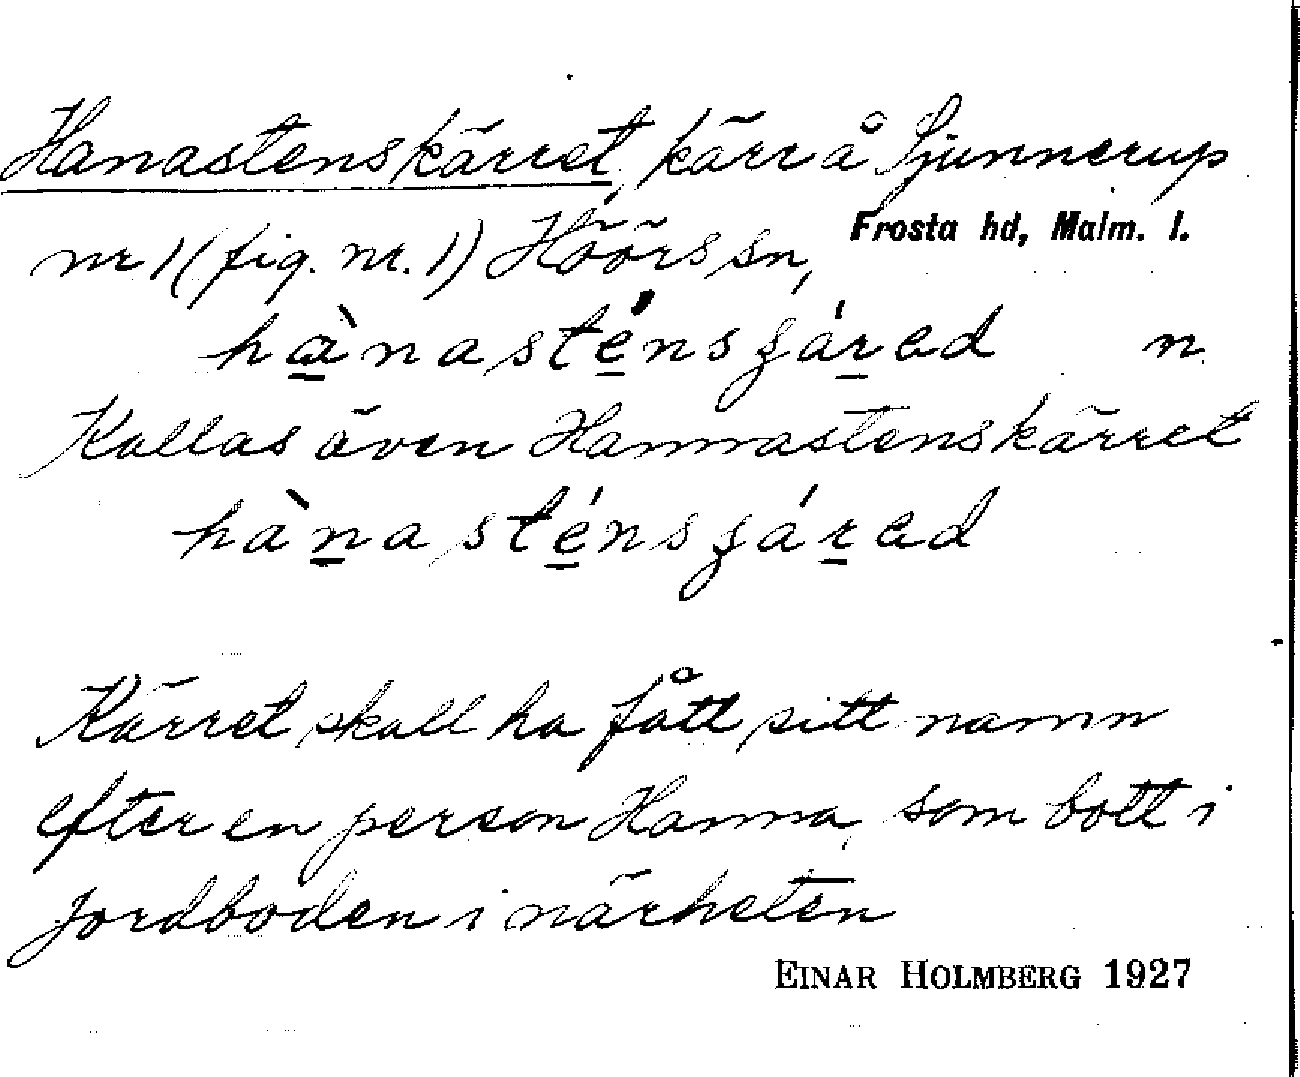 Hanastenskärret, kärr å Ljunnerup
nr 1 (fig. nr. 1) Höörs sn, Frosta hd, Malm. l.
hànasténsʃárad n.
Kallas även Hannastenskärret
hànasténsʃárad
Kärret skall ha fått sitt namn
efter en person Hanna, som bott i
jordboden i närheten
EINAR HOLMBERG 1927